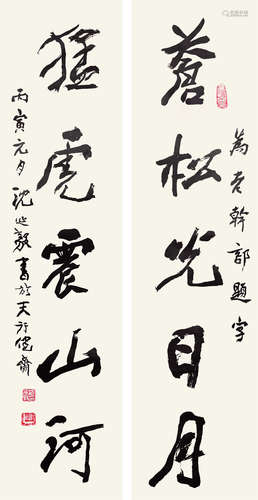 為老幹部題字
蒼松光日月
猛虎震山河
丙寅元月沈延毅書於天行健齋